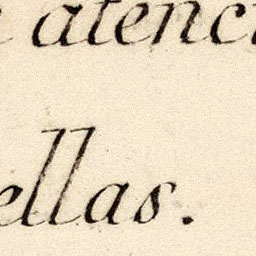 atenci
ellas.